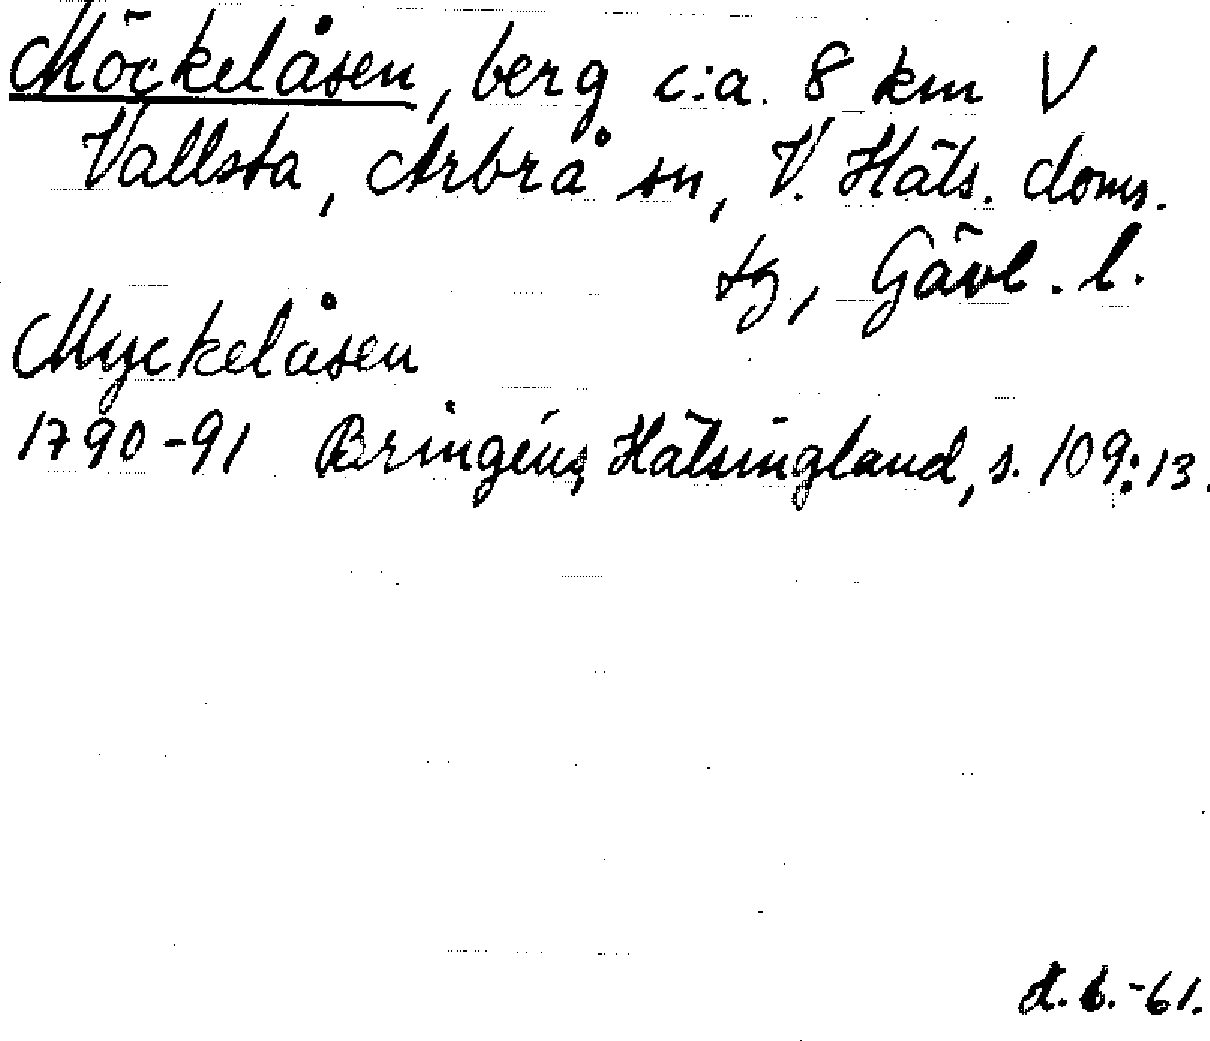 Möckelåsen, berg c:a. 8 km V
Vallsta, Arbrå sn, V. Häls. doms.
tg, Gävl. l.
Myckelåsen
1790-91 Bringéus, Hälsingland, s. 109:13.
-61.